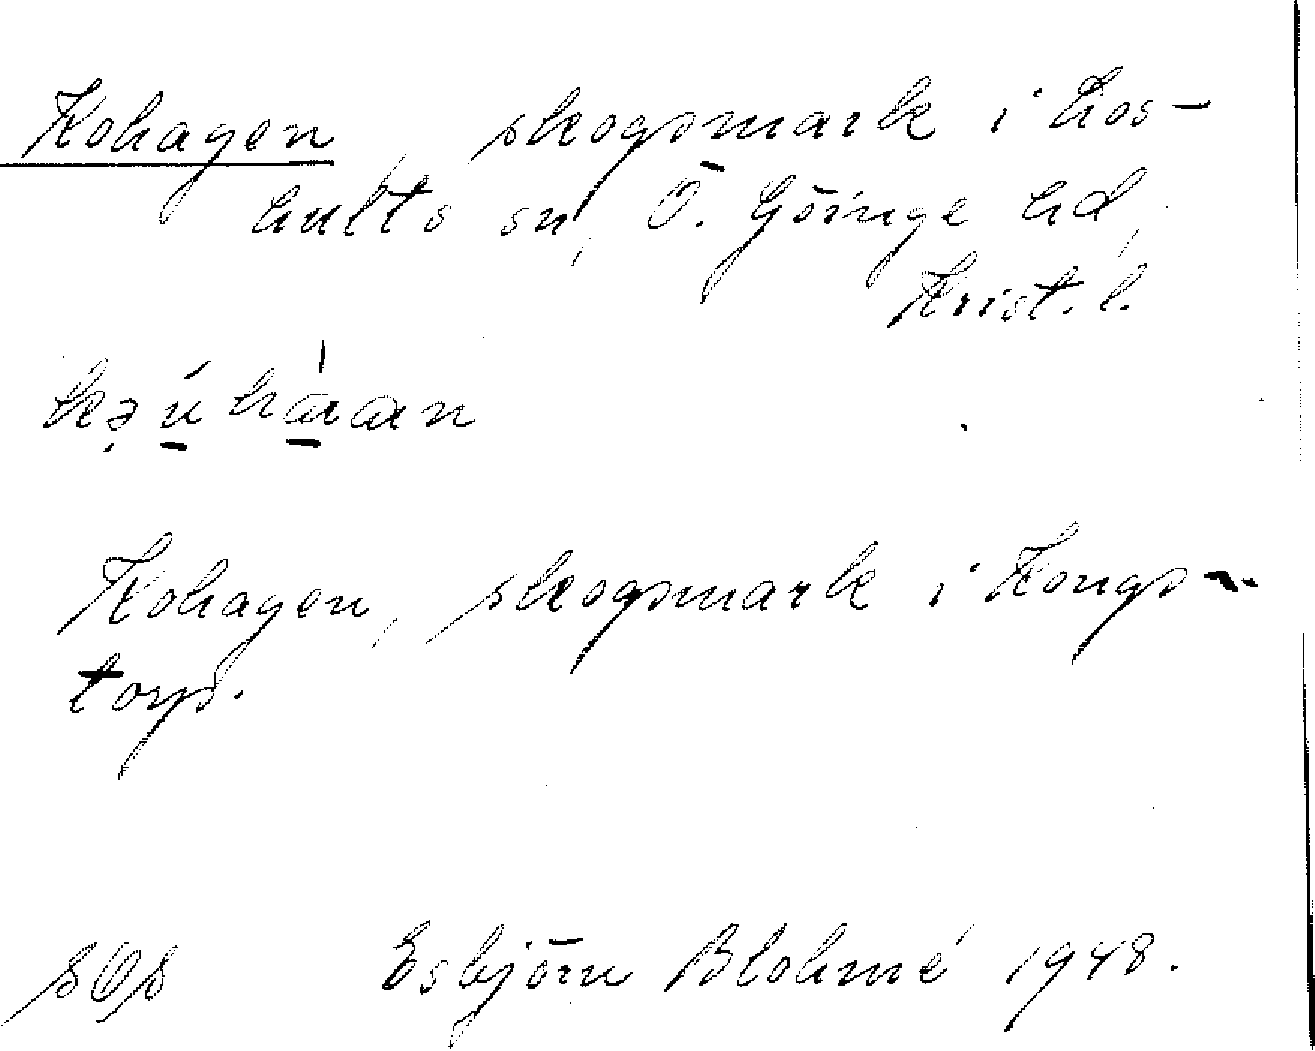 Kohagen, skogsmark i Los-
hults sn, Ö. Göinge hd,
Krist. l.
Kohagen, skogsmark i Kongs-
torp.
Esbjörn Blohmé 1948.